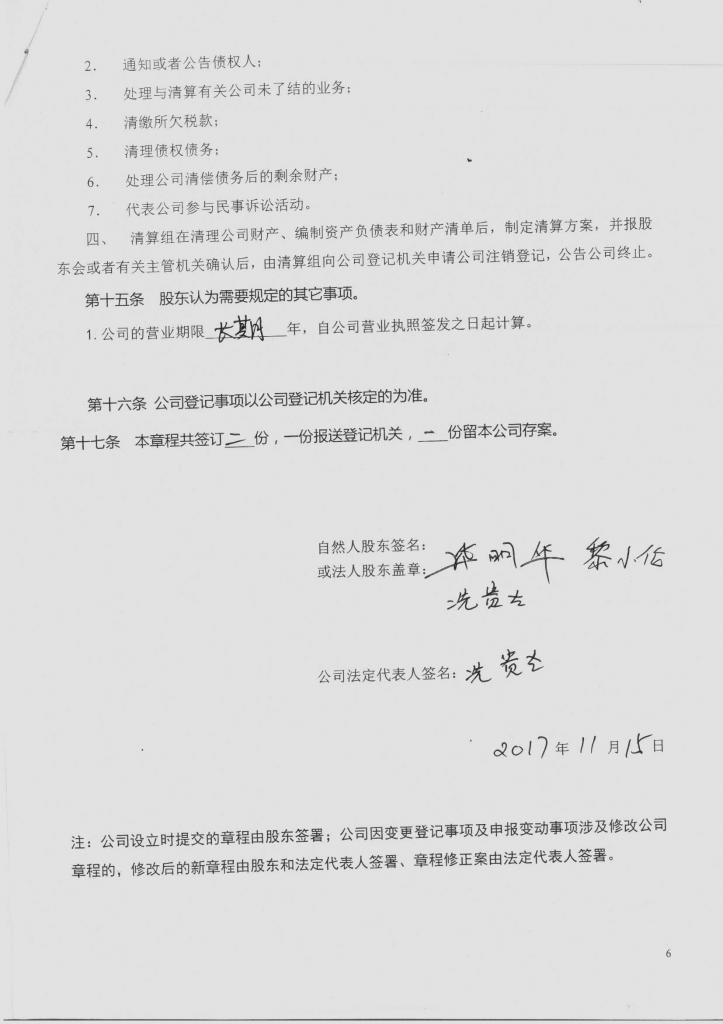 2. 通知或者公告债权人;
3. 处理与清算有关公司未了结的业务;
4. 清缴所欠税款;
5. 清理债权债务;
6. 处理公司清偿债务后的剩余财产;
7. 代表公司参与民事诉讼活动。
四、 清算组在清理公司财产、编制资产负债表和财产清单后，制定清算方案，并报股
东会或者有关主管机关确认后，由清算组向公司登记机关申请公司注销登记，公告公司终止。
第十五条 股东认为需要规定的其它事项。
1. 公司的营业期限 长期 年，自公司营业执照签发之日起计算。
第十六条 公司登记事项以公司登记机关核定的为准。
第十七条 本章程共签订 二 份，一份报送登记机关， 一 份留本公司存案。
自然人股东签名: 明华 黎小
或法人股东盖章:
冼贵
公司法定代表人签名: 冼贵
2017年11月15日
注：公司设立时提交的章程由股东签署；公司因变更登记事项及申报变动事项涉及修改公司
章程的，修改后的新章程由股东和法定代表人签署、章程修正案由法定代表人签署。
6